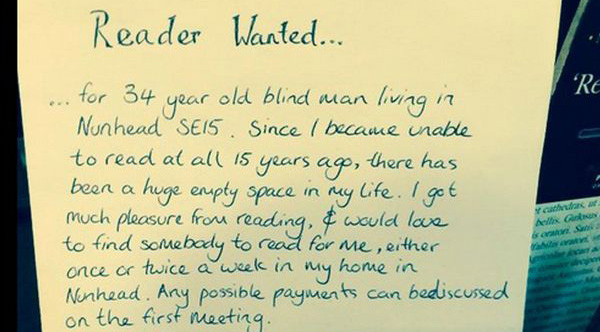 Reader Wanted...
... for 34 year old blind man living in
Nunhead SE15. Since I became unable
to read at all 15 years ago, there has
been a huge empty space in my life. I get
much pleasure from reading, & would love
to find somebody to read for me, either
once or twice a week in my home in
Nunhead. Any possible payments can bediscussed
on the first meeting.
'Re
et cathedras, ut
bellis.